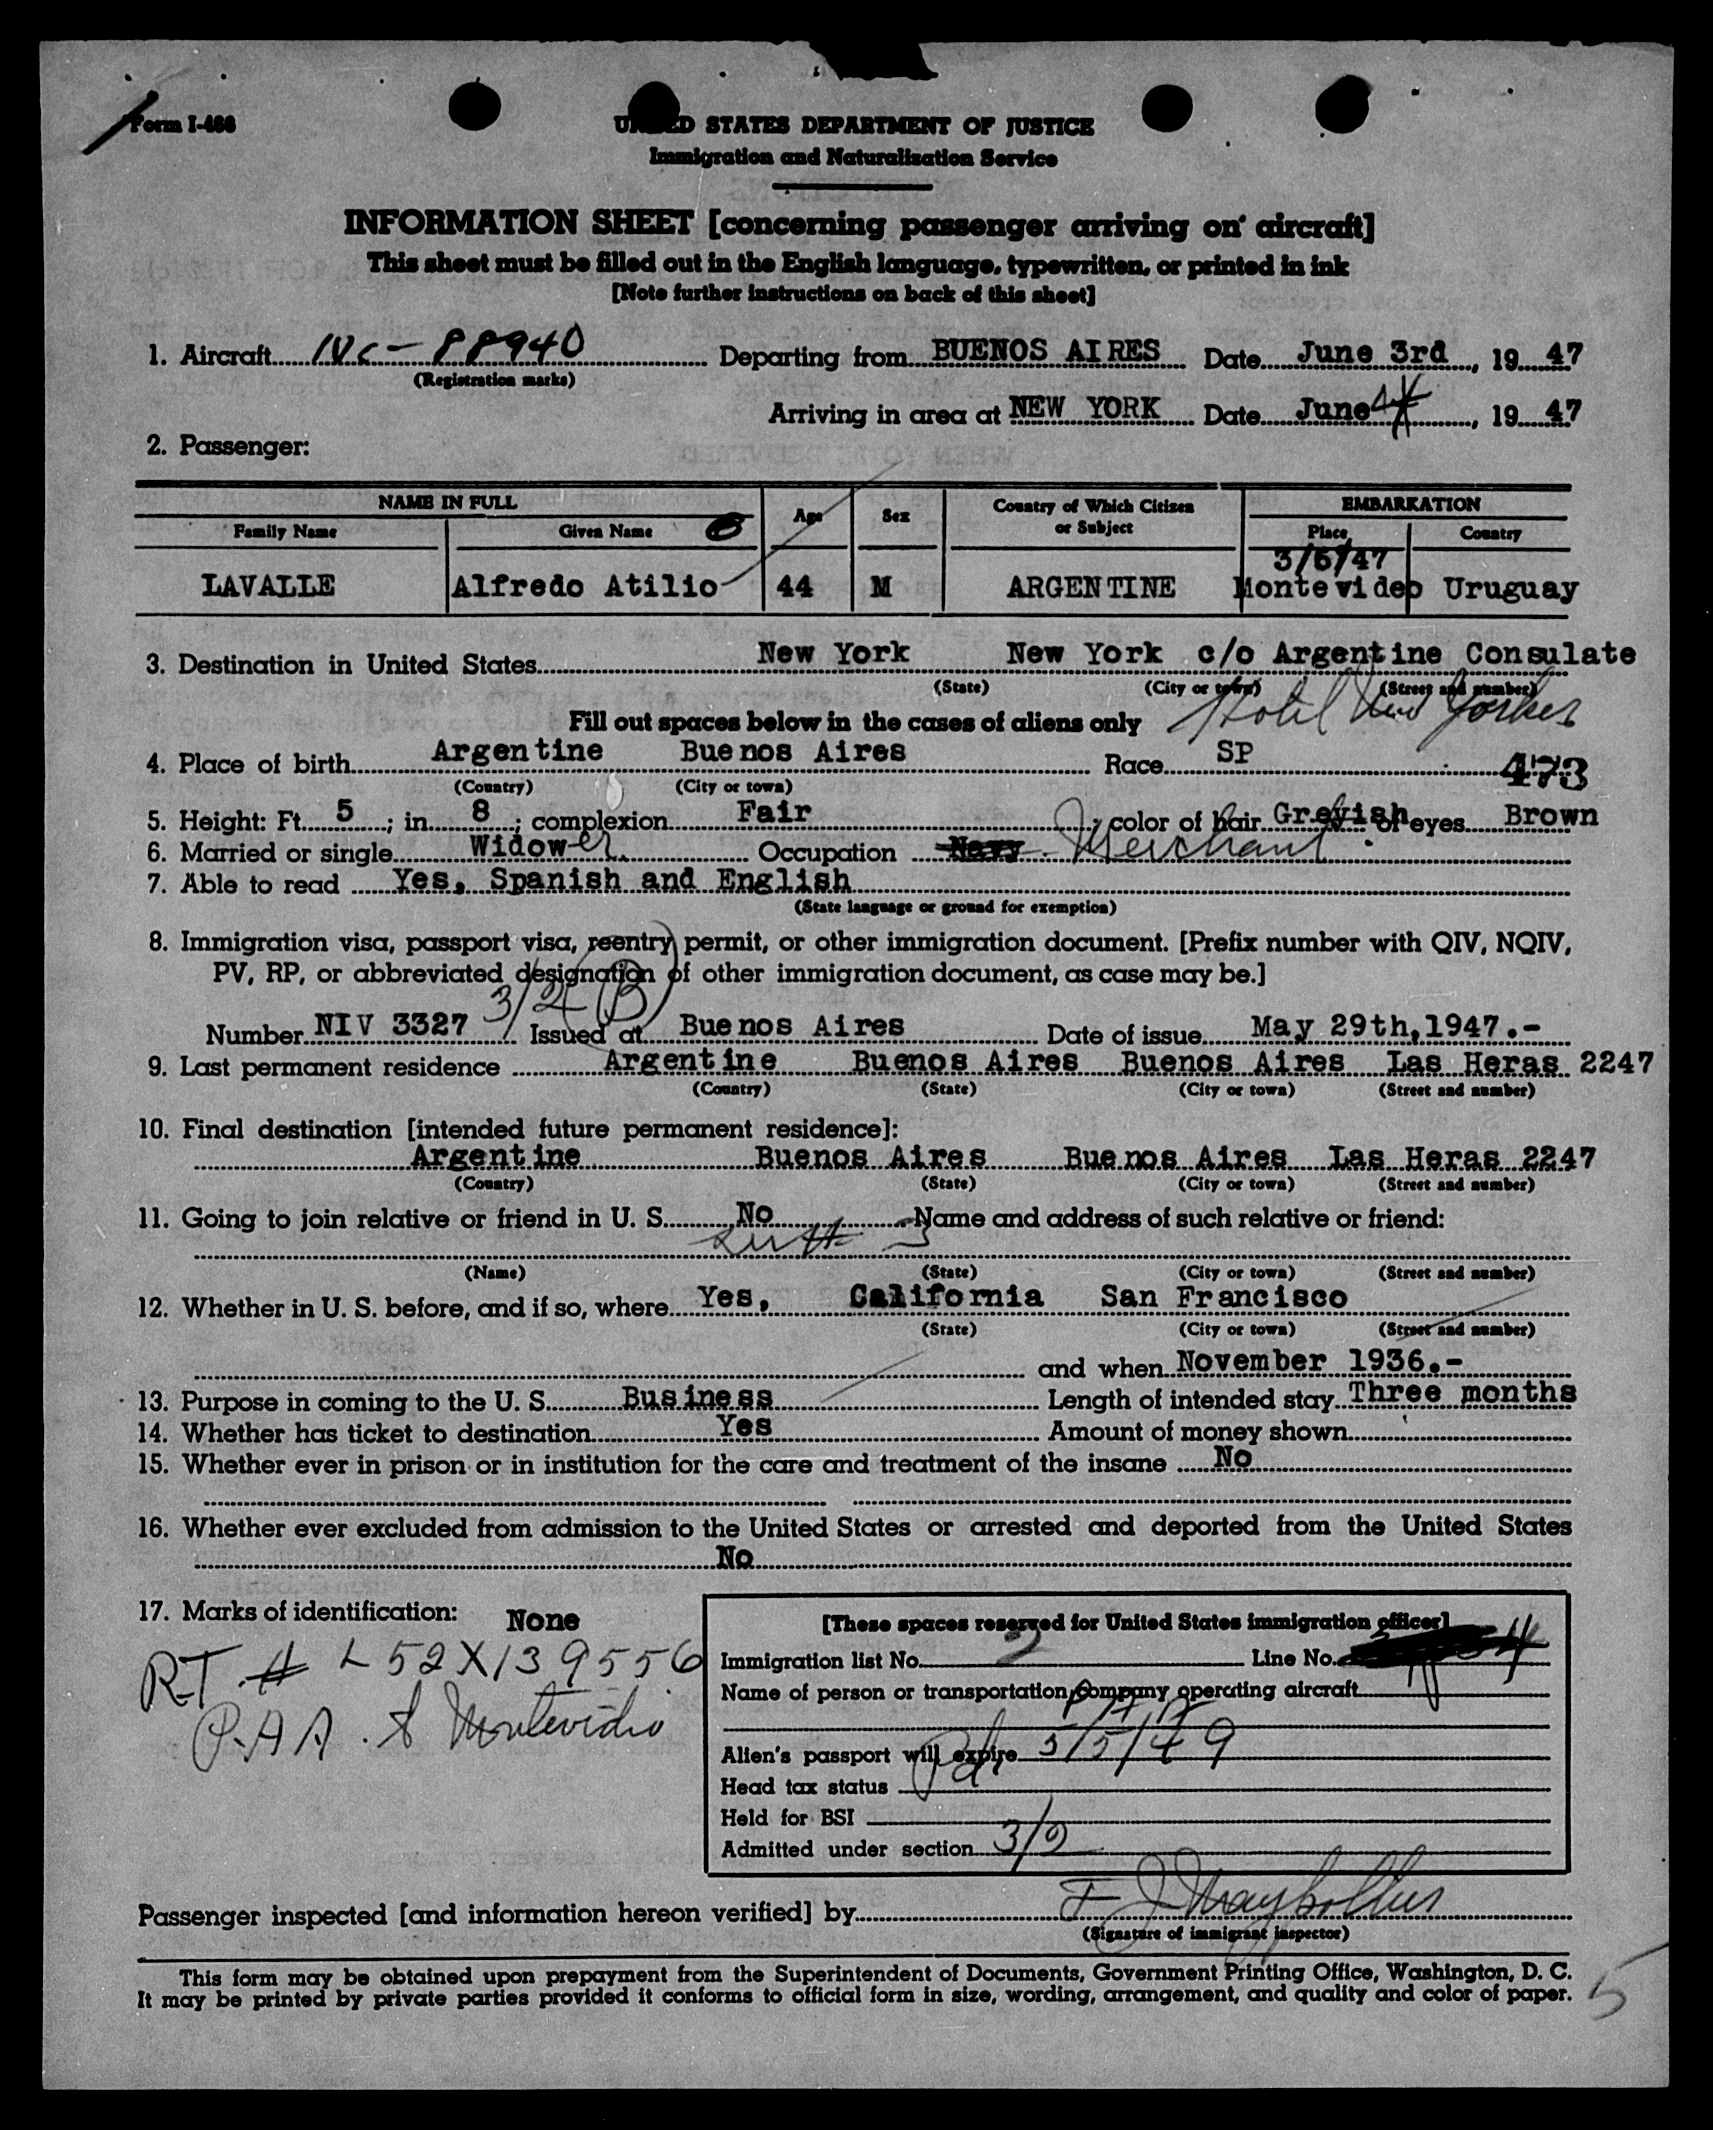 Form I-466
UNITED STATES DEPARTMENT OF JUSTICE
Immigration and Naturalization Service
INFORMATION SHEET [concerning passenger arriving on aircraft]
This sheet must be filled out in the English language, typewritten, or printed in ink
[Note further instructions on back of this sheet]
1. Aircraft NC - 88940 Departing from BUENOS AIRES Date June 3rd, 19 47
(Registration marks)
Arriving in area at NEW YORK Date June 4, 19 47
2. Passenger:
NAME IN FULL Age Sex Country of Which Citizen or Subject EMBARKATION
Family Name Given Name Place Country
3/6/47
LAVALLE Alfredo Atilio 44 M ARGENTINE Montevideo Uruguay
3. Destination in United States New York New York c/o Argentine Consulate
(State) (City or town) (Street and number)
Hotel New Yorker
Fill out spaces below in the cases of aliens only
4. Place of birth Argentine Buenos Aires Race SP 473
(Country) (City or town)
5. Height: Ft. 5; in. 8; complexion Fair; color of hair Greyish of eyes Brown
6. Married or single Widower Occupation Navy Merchant
7. Able to read Yes, Spanish and English
(State language or ground for exemption)
8. Immigration visa, passport visa, reentry permit, or other immigration document. [Prefix number with QIV, NQIV,
PV, RP, or abbreviated designation of other immigration document, as case may be.]
3/2 (B)
Number NIV 3327 Issued at Buenos Aires Date of issue May 29th, 1947.-
9. Last permanent residence Argentine Buenos Aires Buenos Aires Las Heras 2247
(Country) (State) (City or town) (Street and number)
10. Final destination [intended future permanent residence]:
Argentine Buenos Aires Buenos Aires Las Heras 2247
(Country) (State) (City or town) (Street and number)
11. Going to join relative or friend in U. S. No Name and address of such relative or friend:
(Name) (State) (City or town) (Street and number)
12. Whether in U. S. before, and if so, where Yes, California San Francisco
(State) (City or town) (Street and number)
and when November 1936.-
13. Purpose in coming to the U. S. Business Length of intended stay Three months
14. Whether has ticket to destination Yes Amount of money shown
15. Whether ever in prison or in institution for the care and treatment of the insane No
16. Whether ever excluded from admission to the United States or arrested and deported from the United States
No
17. Marks of identification: None
RT # L 52X139556
P.A.A. & Montevideo
[These spaces reserved for United States immigration officer]
Immigration list No. 2 Line No. 4
Name of person or transportation company operating aircraft
Alien's passport will expire 5/5/49
Head tax status Pd
Held for BSI
Admitted under section 3/2
Passenger inspected [and information hereon verified] by
(Signature of immigrant inspector)
This form may be obtained upon prepayment from the Superintendent of Documents, Government Printing Office, Washington, D. C.
It may be printed by private parties provided it conforms to official form in size, wording, arrangement, and quality and color of paper.
5